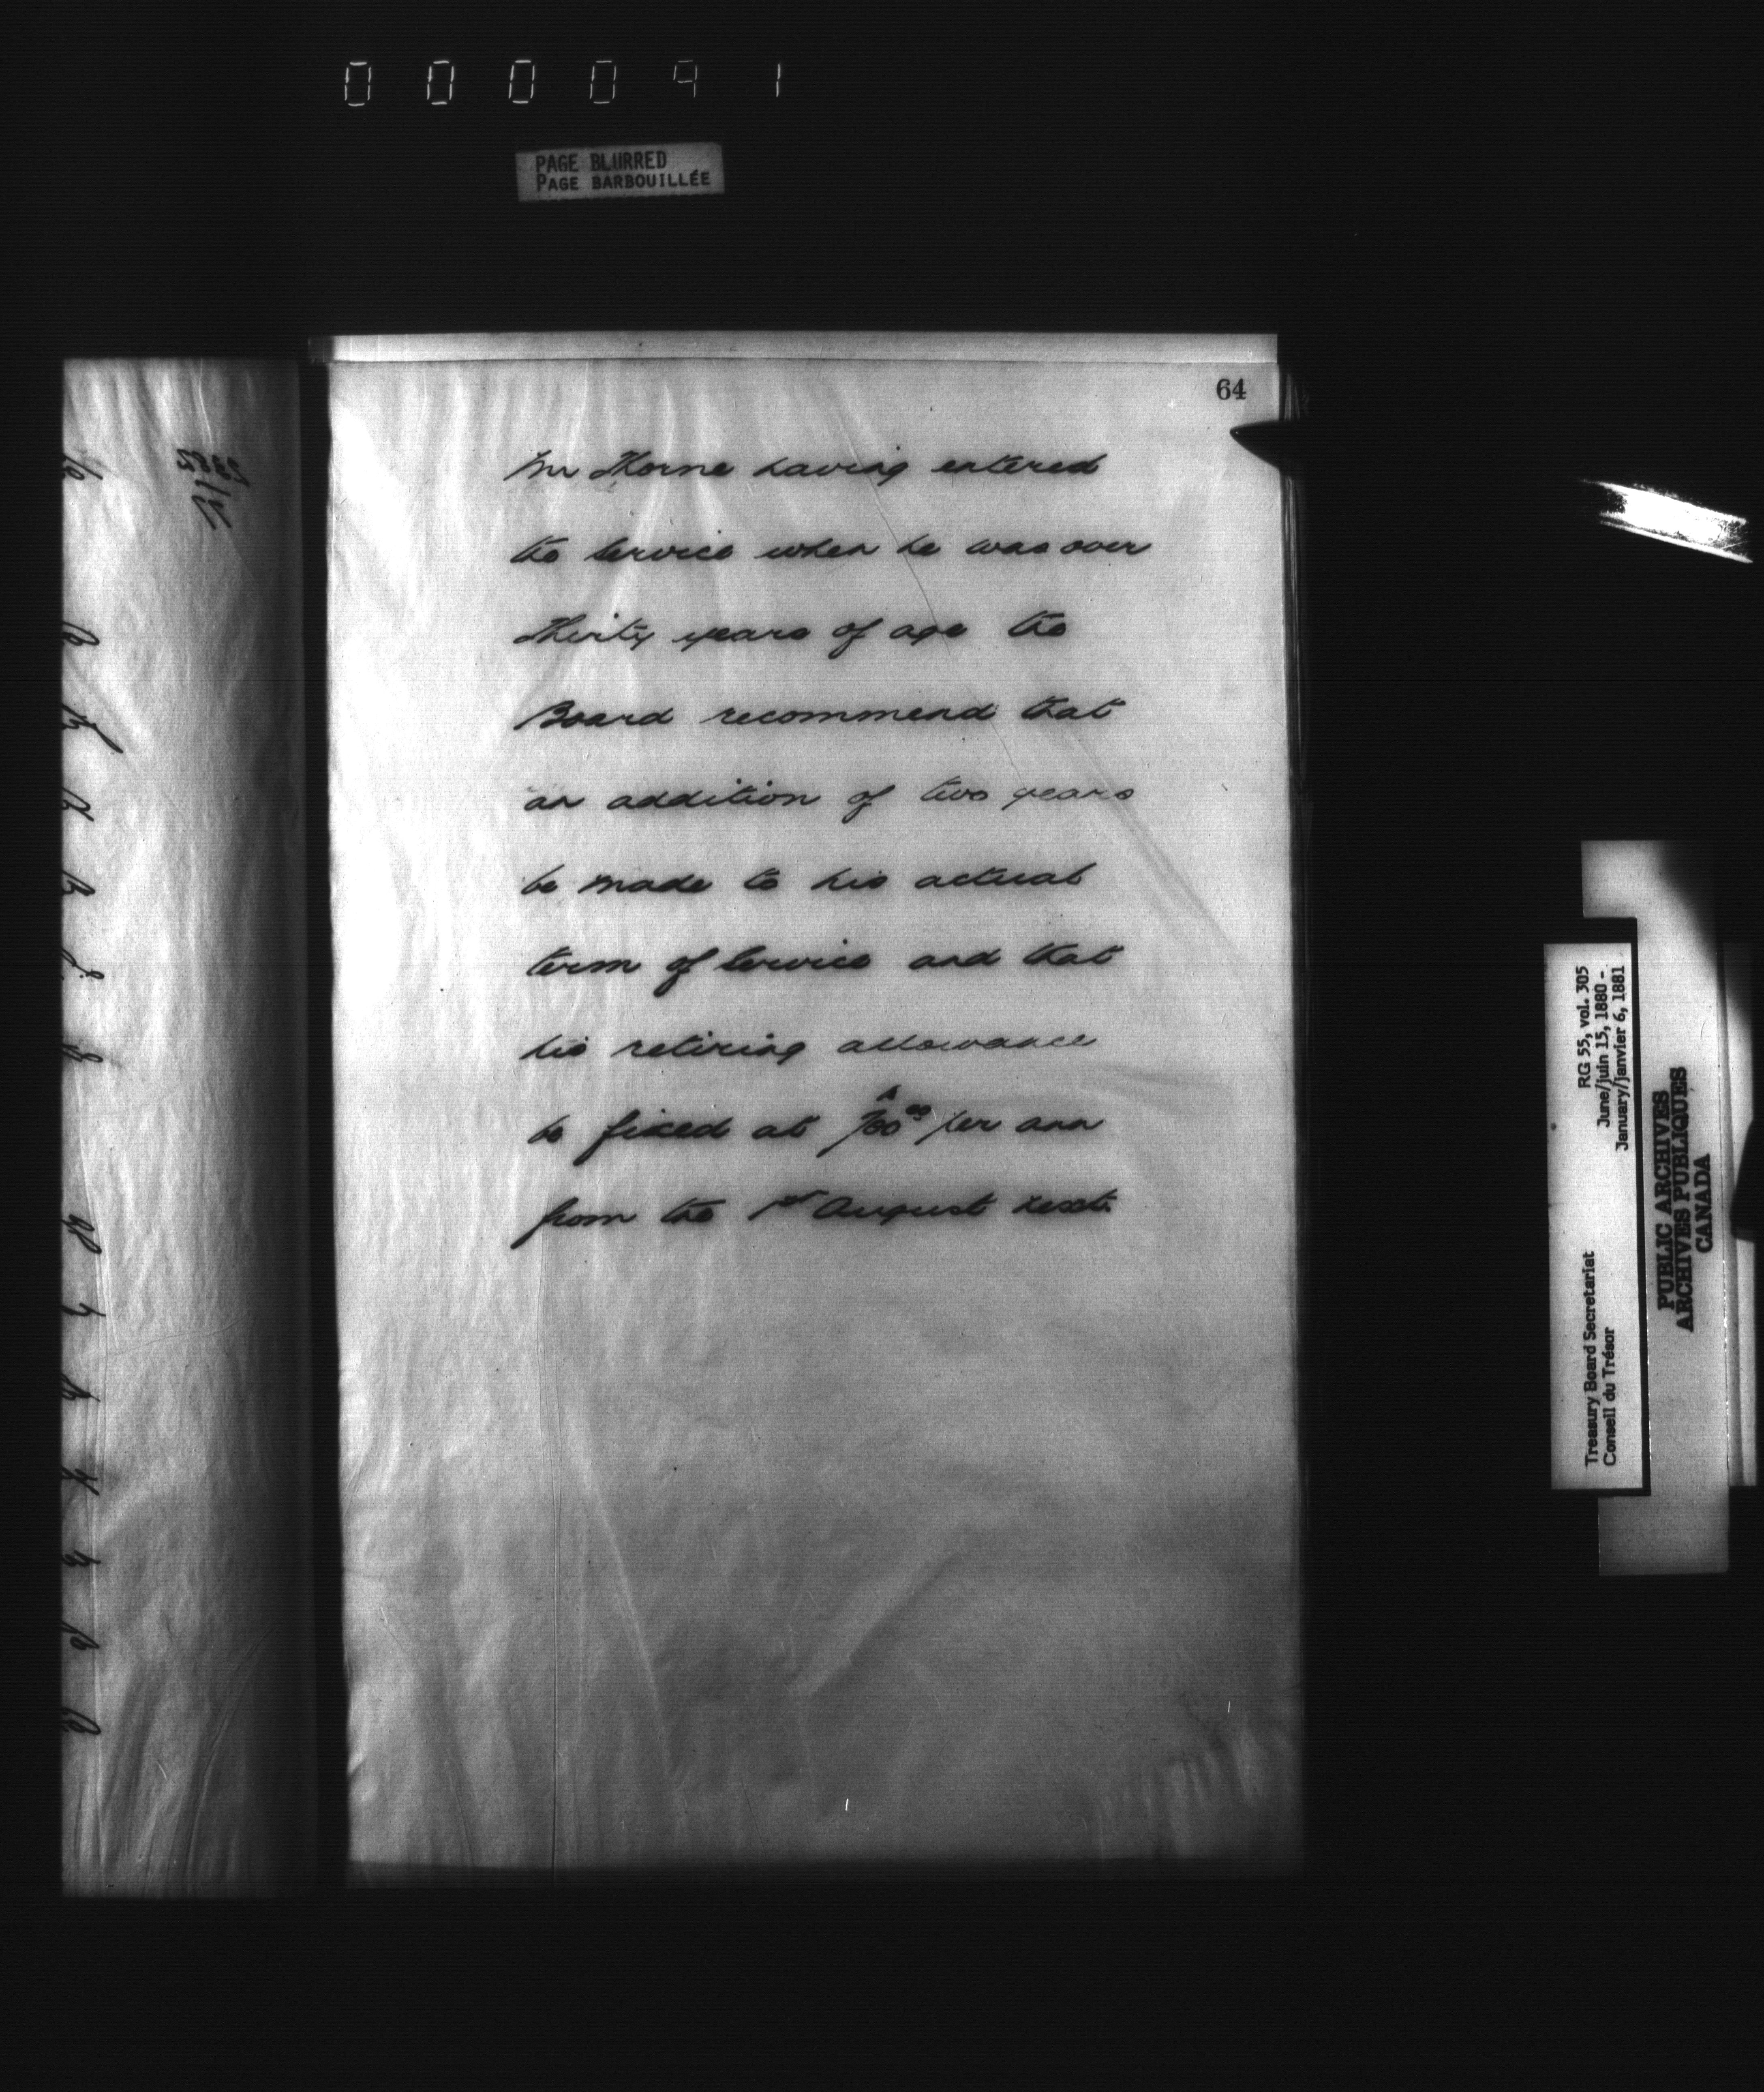 000091
PAGE BLURRED
PAGE BARBOUILLÉE
64
Mr Thorne having entered
the Service when he was over
Thirty years of age the
Board recommend that
an addition of two years
be made to his actual
term of Service and that
his retiring allowance
be fixed at per ann
from the 1st August next.
RG 55, vol. 305
June/juin 15, 1880 -
January/janvier 6, 1881
Treasury Board Secretariat
Conseil du Trésor
PUBLIC ARCHIVES
ARCHIVES PUBLIQUES
CANADA